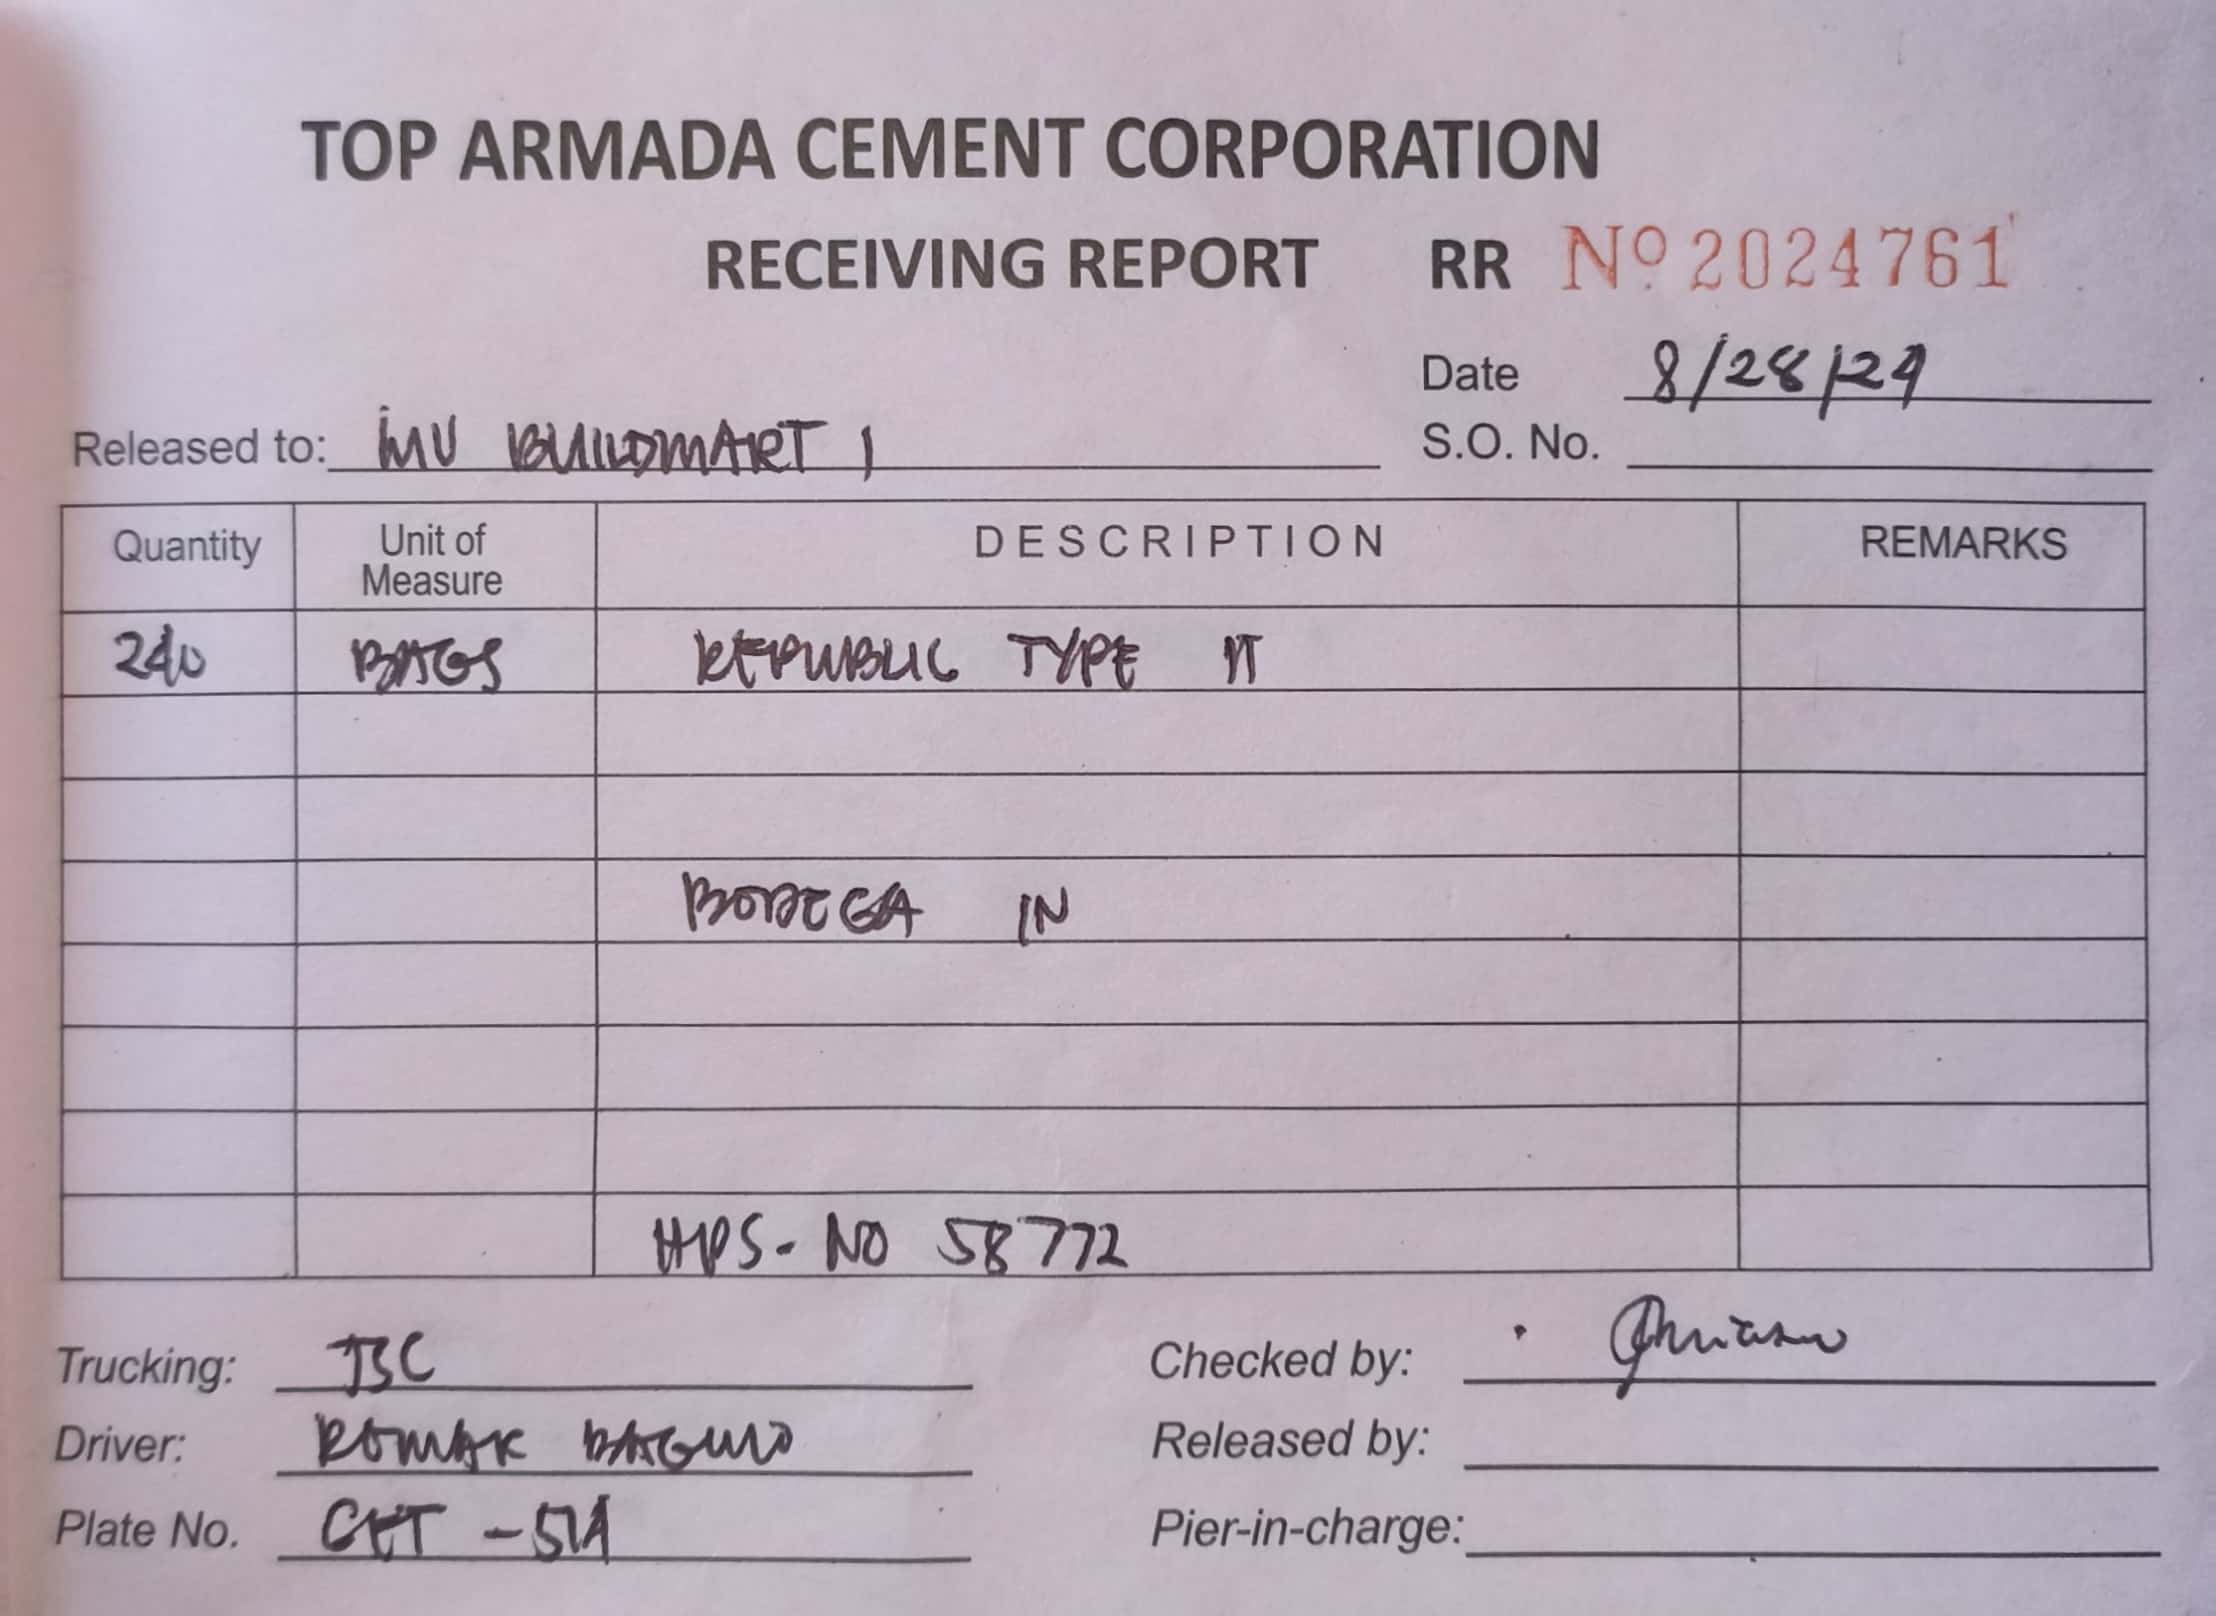 TOP ARMADA CEMENT CORPORATION
RECEIVING REPORT RR Nº 2024761
Date 8/28/24
Released to: MV BUILDMART 1 S.O. No.
Quantity Unit of Measure DESCRIPTION REMARKS
240 BAGS REPUBLIC TYPE 1T
BODEGA IN
HPS- NO 58772
Trucking: JBC Checked by:
Driver: ROMAR BAGUIO Released by:
Plate No. Pier-in-charge: